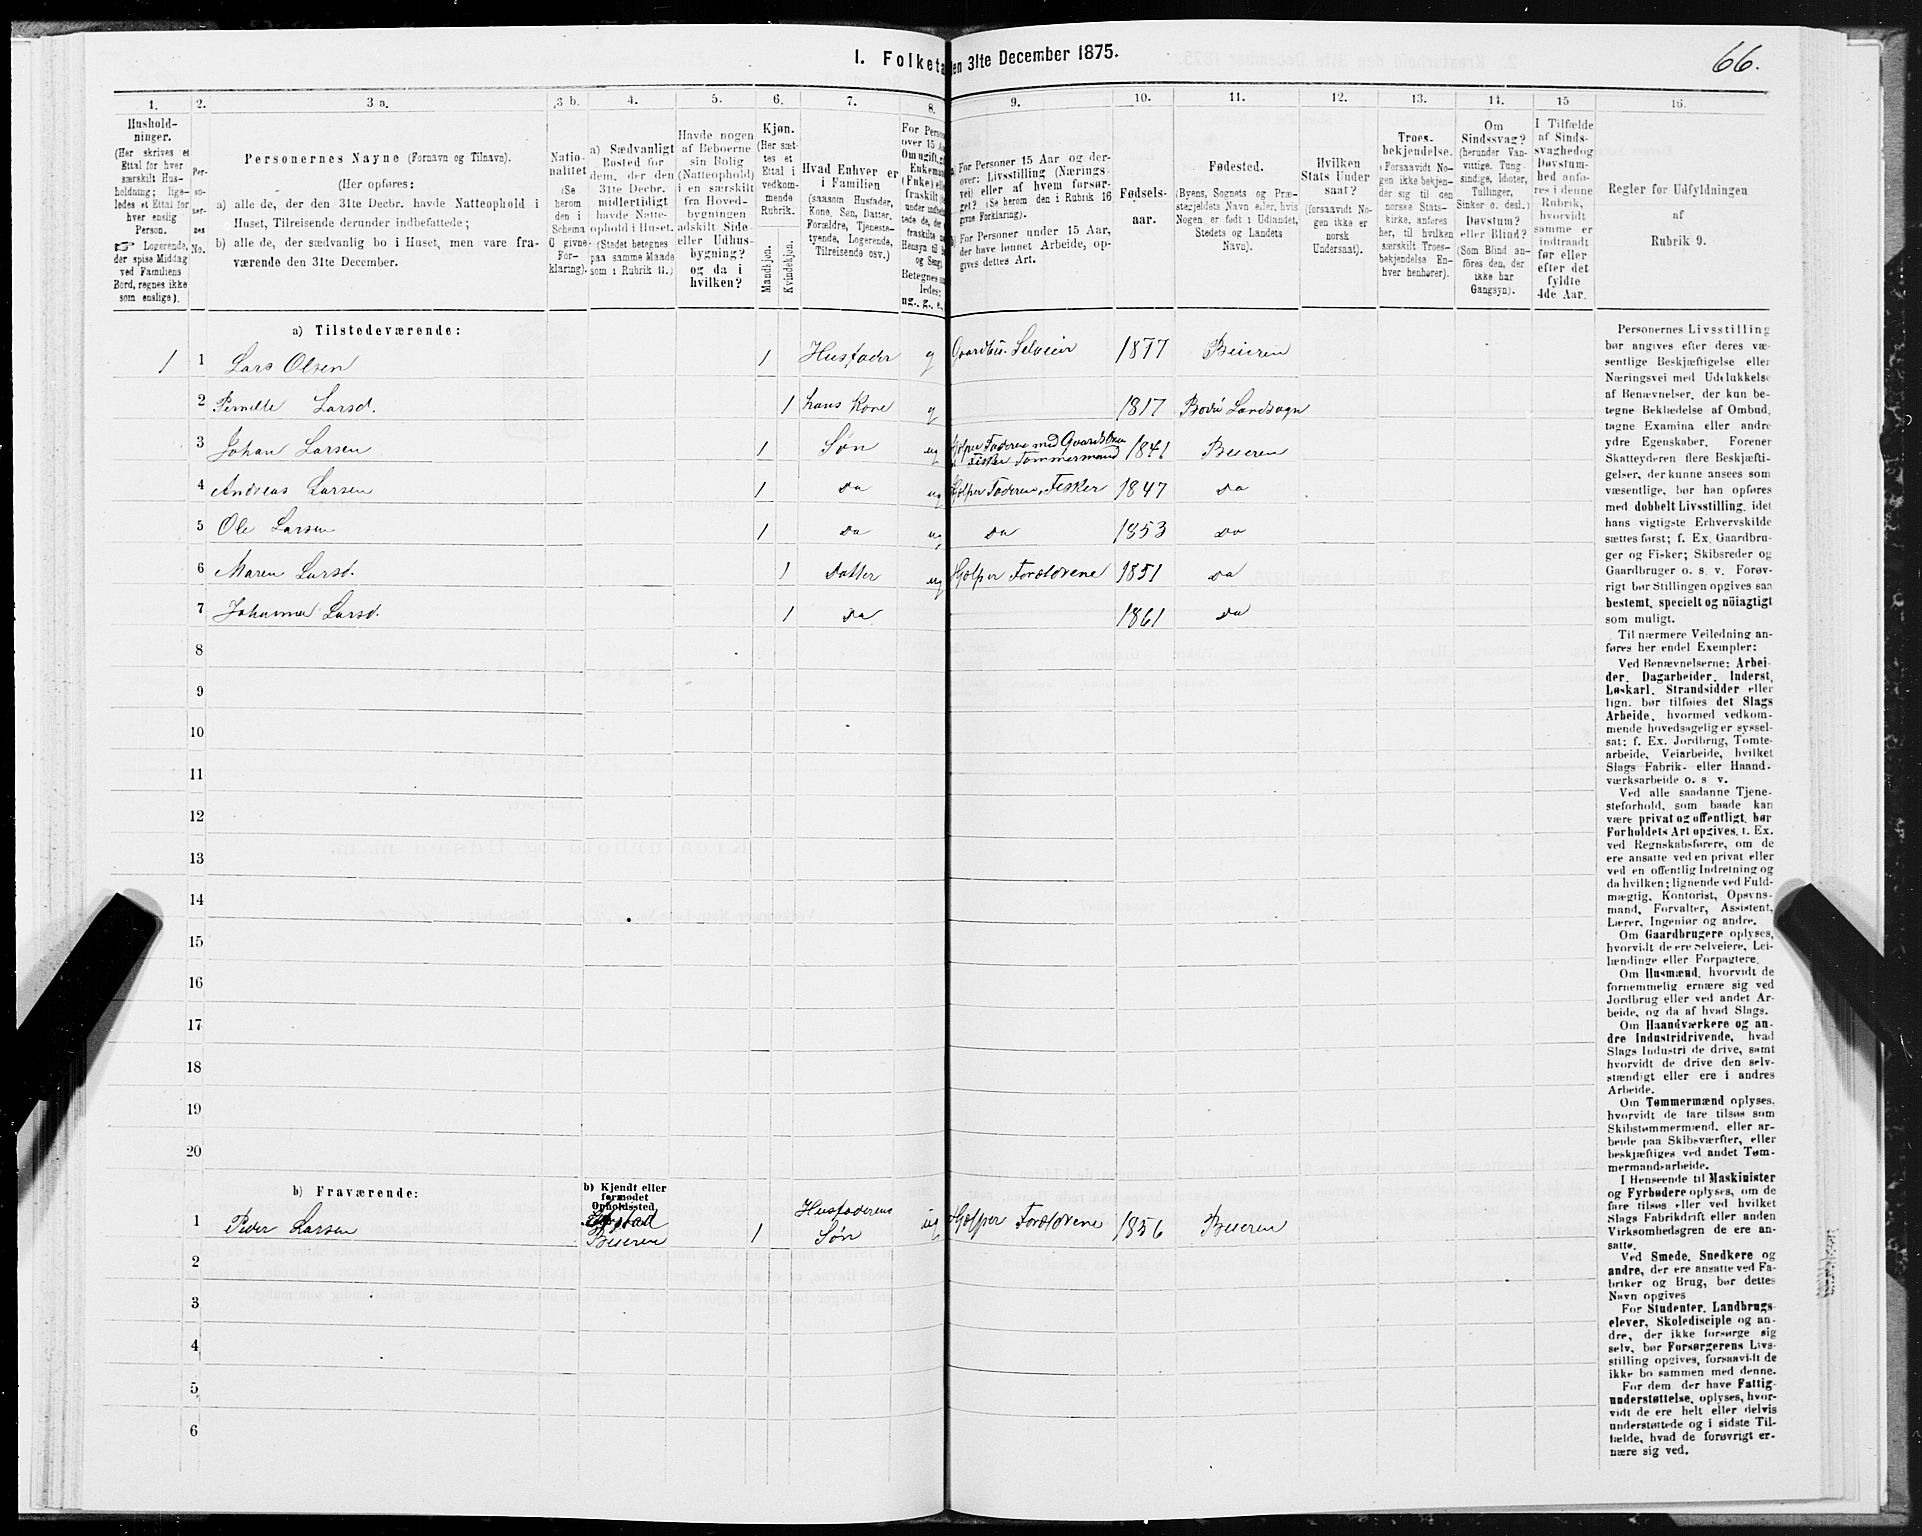 I. Folketa en 31te December 1875.
66.
1.
2.
3 a.
3 b.
4.
5.
6.
7.
8.
9.
10.
11.
12.
13.
14.
15
16.
Hushold-
ninger.
(Her skrives et
Ettal for hver
særskilt Hus-
holdning; lige-
ledes et Ettal for
hver enslig
Person.
☞ Logerende,
der spise Middag
ved Familiens
Bord, regnes ikke
som enslige).
Per-
so-
ner-
nes
No.
Personernes Navne (Fornavn og Tilnavn).
(Her opføres:
a) alle de, der den 31te Decbr. havde Natteophold i
Huset, Tilreisende derunder indbefattede;
b) alle de, der sædvanlig bo i Huset, men vare fra-
værende den 31te December.
Natio-
nalitet
(Se
herom
den i
Schema
G givne
For-
klaring).
a) Sædvanligt
Bosted for
dem, der den
31te Decbr.
midlertidigt
havde Natte-
ophold i Huset.
(Stedet betegnes
paa samme Maade
som i Rubrik 11.)
Havde nogen
af Beboerne
sin Bolig
(Natteophold)
i en særskilt
fra Hoved-
bygningen
adskilt Side-
eller Udhus-
bygning?
og da i
hvilken?
Kjøn.
(Her sæt-
tes et
Ettal i
vedkom-
mende
Rubrik.
Mandkjøn.
Kvindekjøn.
Hvad Enhver er
i Familien
(saasom Husfader,
Kone, Søn, Datter,
Forældre, Tjeneste-
tyende, Logerende,
Tilreisende osv.)
For Person
over 15 Aa
Om ugift, gi
Enkeman
(Enke) elle
fraskilt
Betegnes saa
ledes:
ug., g., e.,
a) For Personer 15 Aar og der-
over: Livsstilling (Nærings-
vei) eller af hvem forsør-
get? (Se herom den i Rubrik 16
givne Forklaring).
b) For Personer under 15 Aar,
der have lønnet Arbeide, op-
gives dettes Art.
Fødsels-
aar.
Fødested.
(Byens, Sognets og Præ-
stegjeldets Navn eller, hvis
Nogen er født i Udlandet,
Stedets og Landets
Navn).
Hvilken
Stats Under
saat?
(forsaavidt No-
gen ikke er
norsk
Undersaat).
Troes-
bekjendelse.
(Forsaavidt No-
gen ikke bekjen-
der sig til den
norske Stats-
kirke, anføres
her, til hvilken
særskilt Troes-
bekjendelse En-
hver henhører).
Om
Sindssvag?
(herunder Van-
vittige, Tung-
sindige, Idioter,
Tullinger,
Sinker o. desl.)
Døvstum?
eller Blind?
(Som Blind an-
føres den, der
ikke har
Gangsyn).
I Tilfælde
af Sinds-
svaghed og
Døvstum-
hed anfø-
res i denne
Rubrik,
hvorvidt
samme er
indtraadt
før eller
efter det
fyldte
4de Aar.
Regler for Udfyldningen
af
Rubrik 9.
a) Tilstedeværende:
1 1 Lars Olsen 1 Husfader g Gaardbr. Selveier 1877 Beieren
2 Pernille Larsd. 1 hans Kone g 1817 Bodø Landsogn
3 Johan Larsen 1 Søn ug Hjelper Faderen med Gaardsbru Fisker Tømmermand 1841 Beieren
4 Andreas Larsen 1 Do ug Hjelper Faderen, Fisker 1847 Do
5 Ole Larsen 1 Do ug Do 1853 Do
6 Maren Larsd. 1 Datter ug Hjelper Forældrene 1851 Do
7 Johanna Larsd. 1 Do 1861 Do
8
9
10
11
12
13
14
15
16
17
18
19
20
b) Fraværende:
b) Kjendt eller
formodet
Opholdssted.
1 Peder Larsen Beieren 1 Husfaderens Søn ug Hjelper Forældrene 1856 Beieren
2
3
4
5
6
Personernes Livsstilling
bør angives efter deres væ-
sentlige Beskjæftigelse eller
Næringsvei med Udelukkelse
af Benævnelser, der kun be-
tegne Beklædelse af Ombud,
tagne Examina eller andre
ydre Egenskaber. Forener
Skatteyderen flere Beskjæfti-
gelser, der kunne ansees som
væsentlige, bør han opføres
med dobbelt Livsstilling, idet
hans vigtigste Erhvervskilde
sættes først; f. Ex. Gaardbru-
ger og Fisker; Skibsreder og
Gaardbruger o. s. v. Forøv-
rigt bør Stillingen opgives saa
bestemt, specielt og nöiagtigt
som muligt.
Til nærmere Veiledning an-
føres her endel Exempler:
Ved Benævnelserne: Arbei-
der, Dagarbeider, Inderst,
Løskarl, Strandsidder eller
lign. bør tilføies det Slags
Arbeide, hvormed vedkom-
mende hovedsagelig er syssel-
sat; f. Ex. Jordbrug, Tomte-
arbeide, Veiarbeide, hvilket
Slags Fabrik- eller Haand-
værksarbeide o. s v.
Ved alle saadanne Tjene-
steforhold, som baade kan
være privat og offentligt, bør
Forholdets Art opgives, f. Ex.
ved Regnskabsførere, om de
ere ansatte ved en privat eller
ved en offentlig Indretning og
da hvilken; lignende ved Fuld-
mægtig, Kontorist, Opsyns-
mand, Forvalter, Assistent,
Lærer, Ingeniør og andre.
Om Gaardbrugere oplyses,
hvorvidt de ere Selveiere, Lei-
lændinge eller Forpagtere.
Om Husmænd, hvorvidt de
fornemmelig ernære sig ved
Jordbrug eller ved andet Ar-
beide, og da af hvad Slags.
Om Haandværkere og an-
dre Industridrivende, hvad
Slags Industri de drive, samt
hvorvidt de drive den selv-
stændigt eller ere i andres
Arbeide.
Om Tømmermænd oplyses,
hvorvidt de fare tilsøs som
Skibstømmermænd, eller ar-
beide paa Skibsværfter, eller
beskjæftiges ved andet Tøm-
mermandsarbeide.
I Henseende til Maskinister
og Fyrbødere oplyses, om de
fare tilsøs eller ved hvilket
Slags Fabrikdrift eller anden
Virksomhedsgren de ere an-
satte.
Ved Smede, Snedkere og
andre, der ere ansatte ved Fa-
briker og Brug, bør dettes
Navn opgives
For Studenter, Landbrugs-
elever, Skoledisciple og an-
dre, der ikke forsørge sig
selv, bør Forsørgerens Livs-
stilling opgives, forsaavidt de
ikke bo sammen med denne.
For dem der have Fattig-
understøttelse, oplyses, hvor-
vidt de ere helt eller delvis
understøttede og i sidste Til-
fælde, hvad de forøvrigt er-
nære sig ved.